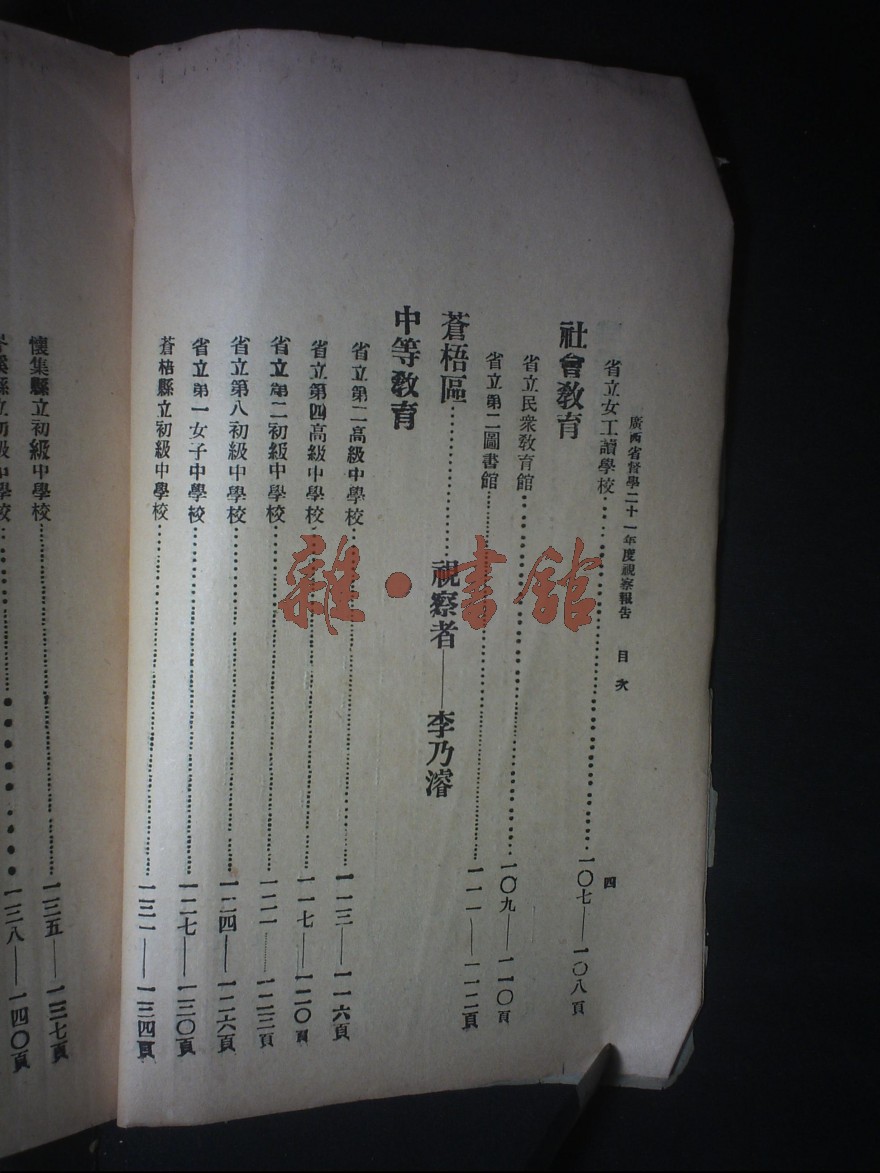 廣西省督學二十一年度視察報告　目次　四
省立女工讀學校……一〇七——一〇八頁
社會教育
省立民衆教育館……一〇九——一一〇頁
省立第二圖書館……一一一——一一二頁
蒼梧區……視察者——李乃濬
中等教育
省立第二高級中學校……一一三——一一六頁
省立第四高級中學校……一一七——一二〇頁
省立第二初級中學校……一二一……一二三頁
省立第八初級中學校……一二四——一二六頁
省立第一女子中學校……一二七——一三〇頁
蒼梧縣立初級中學校……一三一——一三四頁
懷集縣立初級中學校……一三五——一三七頁
岑溪縣立初級中學校……一三八——一四〇頁
雜·書館